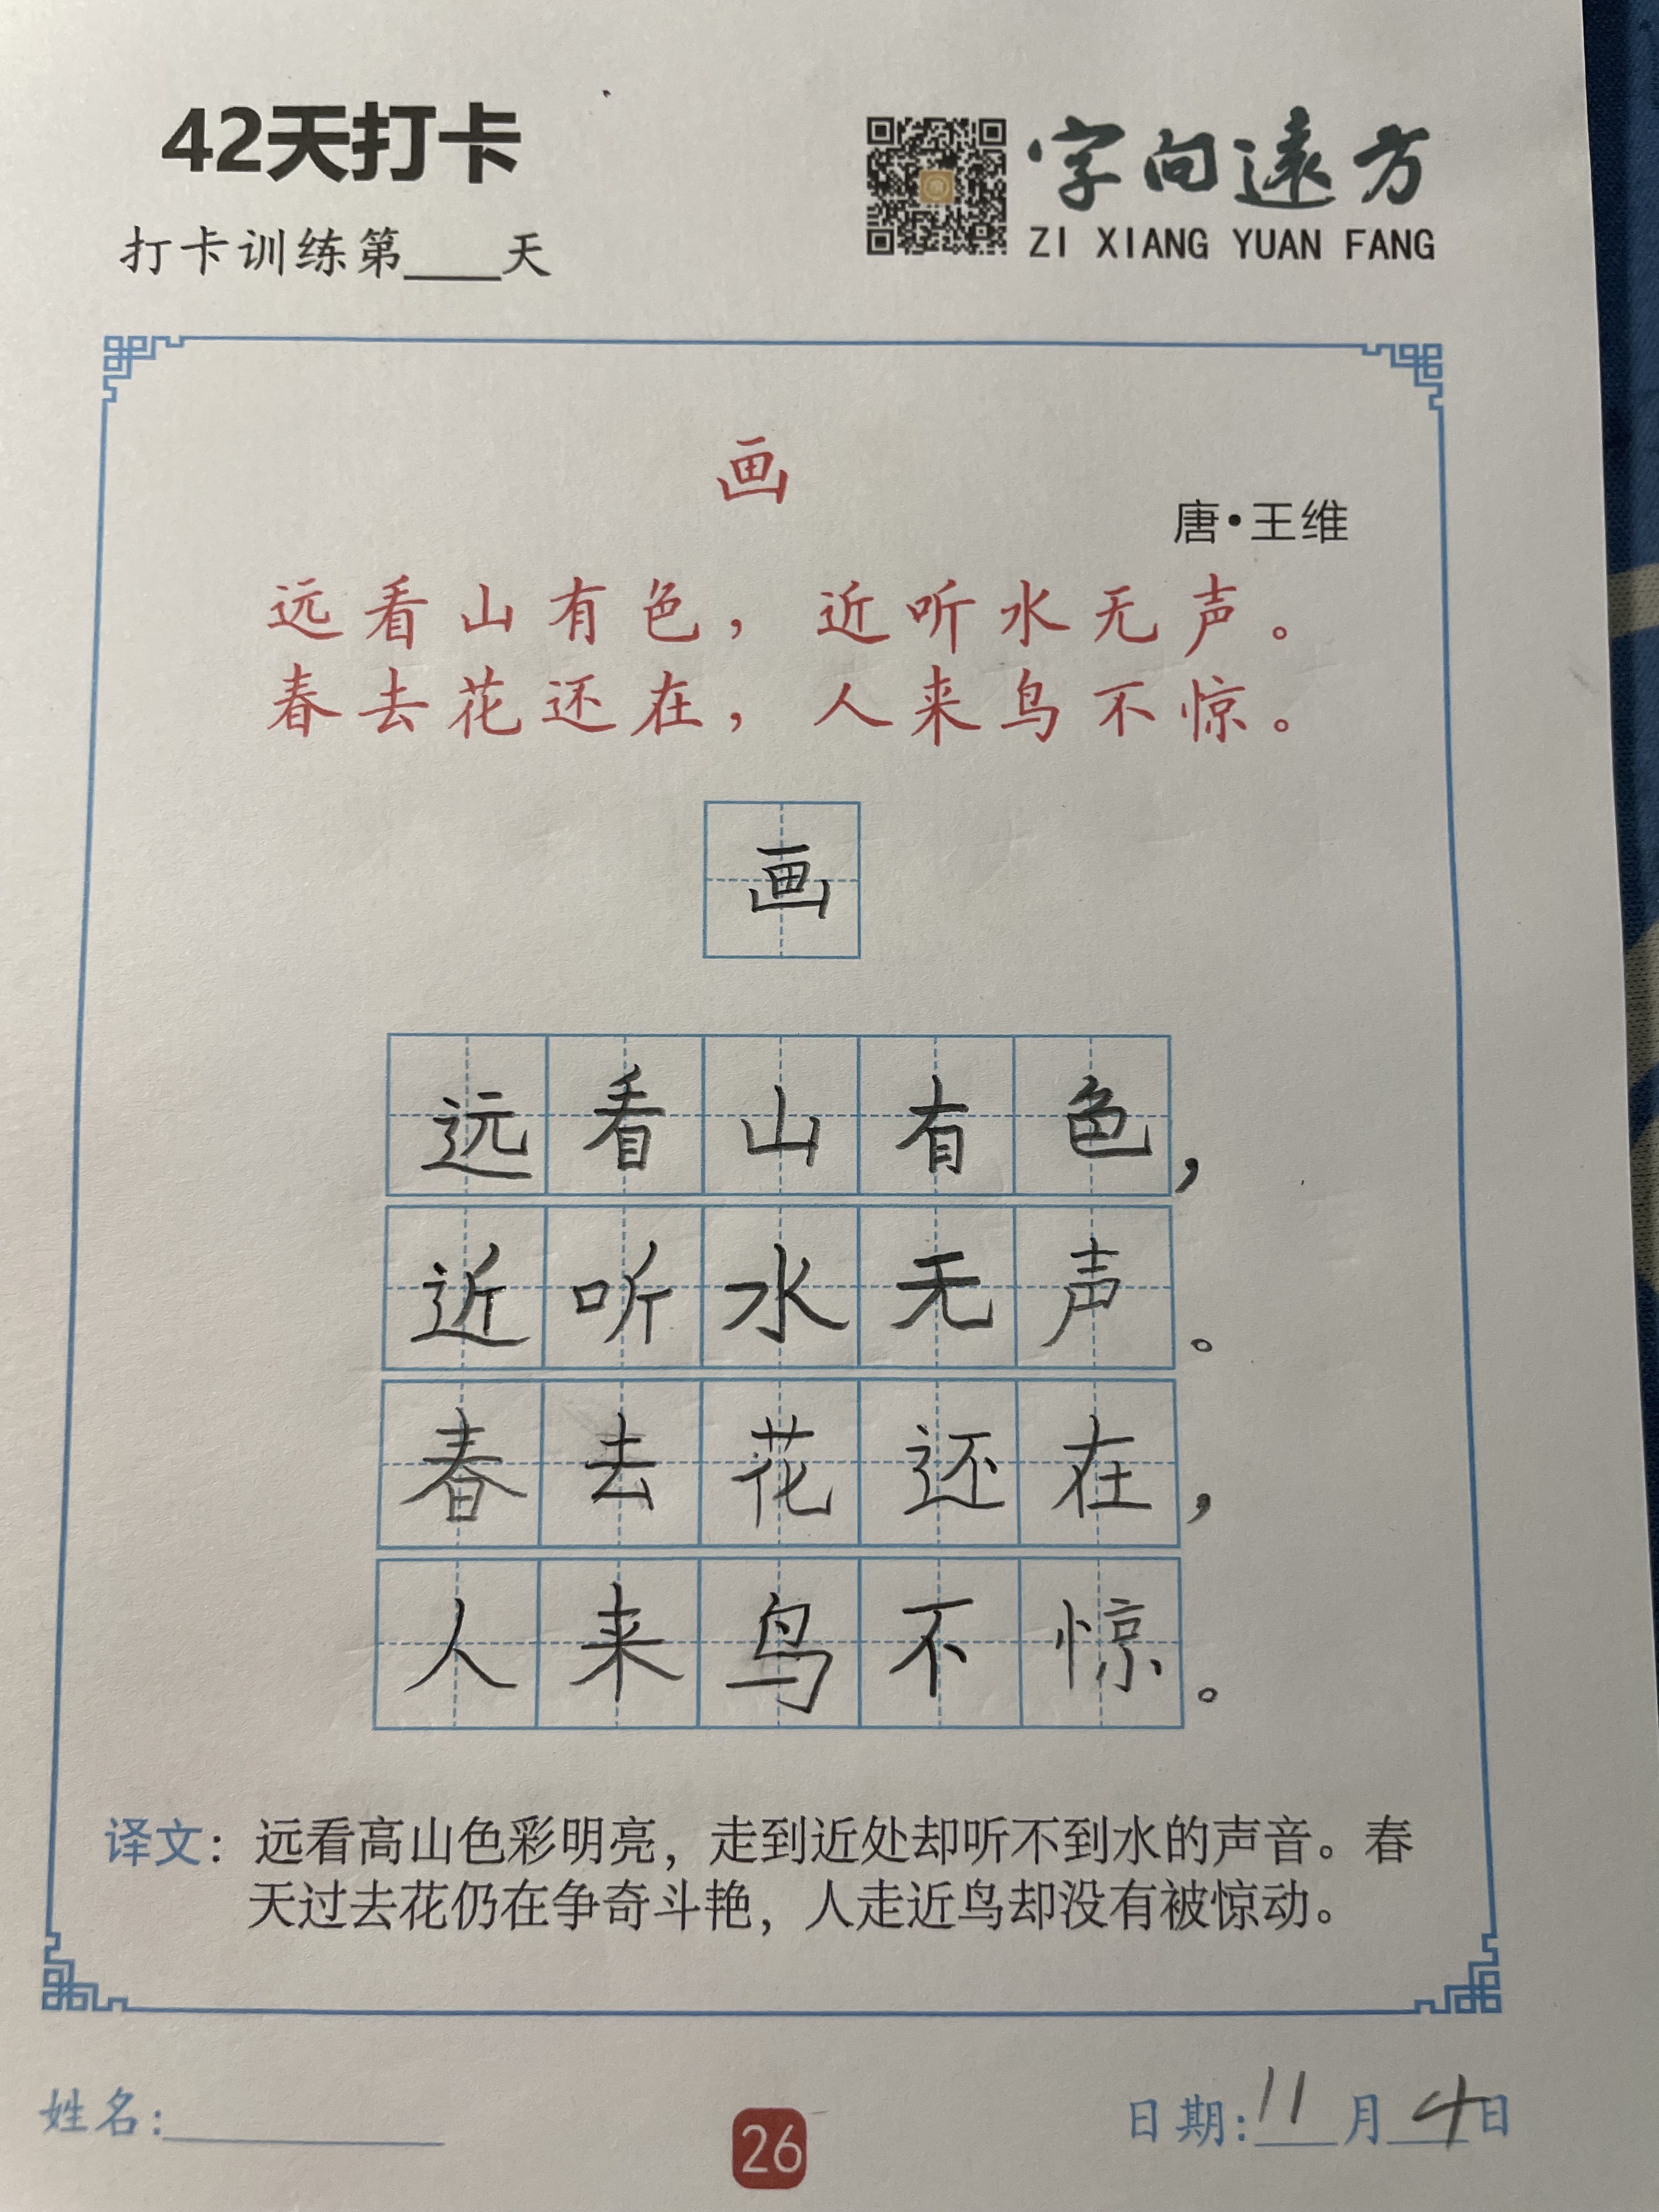 42天打卡
打卡训练第____天
字向遠方
ZI XIANG YUAN FANG
画
唐·王维
远看山有色，近听水无声。
春去花还在，人来鸟不惊。
画
远看山有色，
近听水无声。
春去花还在，
人来鸟不惊。
译文：远看高山色彩明亮，走到近处却听不到水的声音。春
天过去花仍在争奇斗艳，人走近鸟却没有被惊动。
姓名:__________
26
日期:11月4日